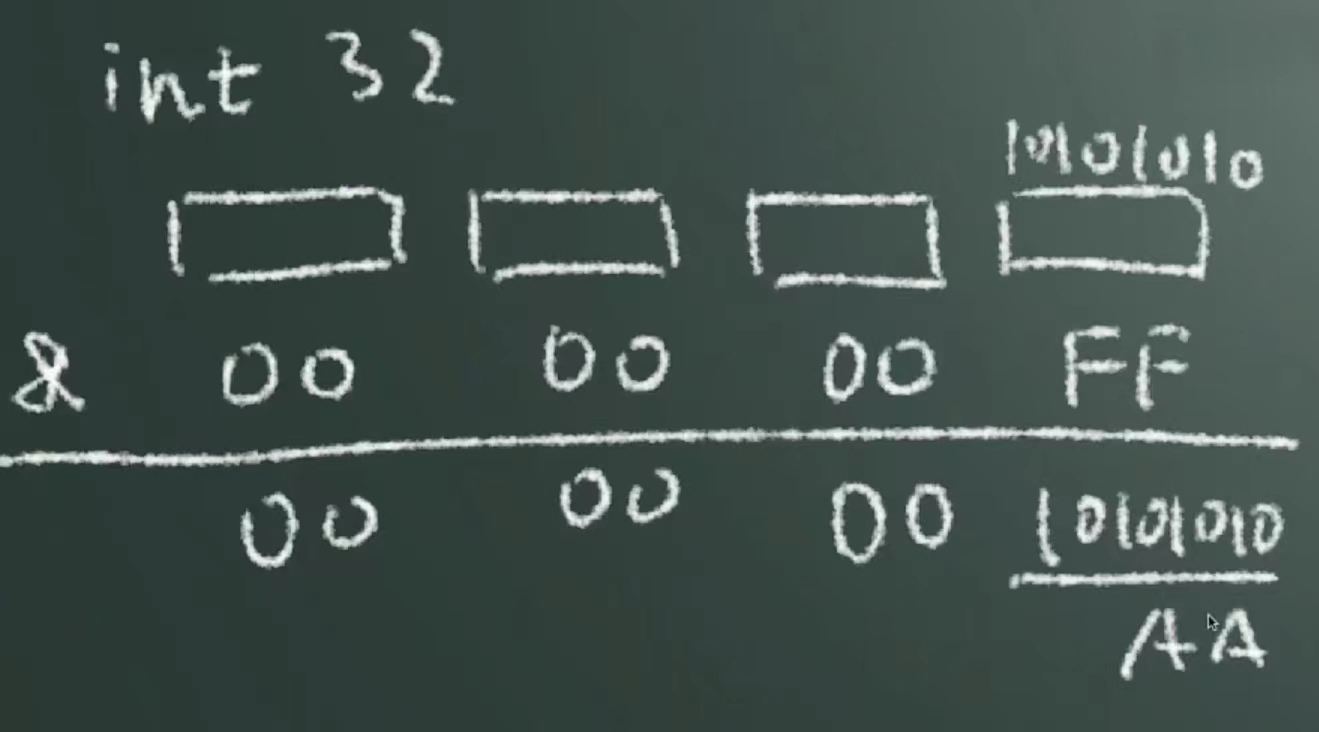 int 32
10101010
& 00 00 00 FF
00 00 00 10101010
AA